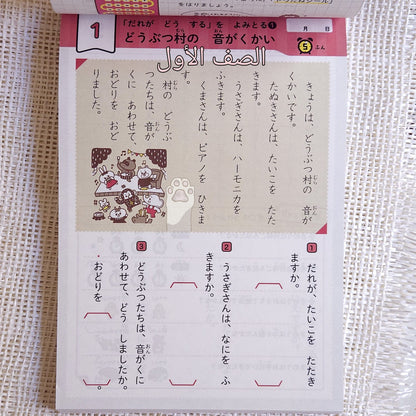 をはりましょう。
1
「だれが どう する」を よみとる❶
どうぶつ村の 音がくかい
むら
おん
月 日
5 ふん
الصف الأول
きょうは、どうぶつ村の 音が
むら
おん
くかいです。
たぬきさんは、たいこを たた
きます。
うさぎさんは、ハーモニカを
ふきます。
くまさんは、ピアノを ひきま
す。
村の どうぶ
むら
つたちは、音が
おん
くに あわせて、
おどりを おど
りました。
1 だれが、たいこを たたき
ますか。
2 うさぎさんは、なにを ふ
きますか。
3 どうぶつたちは、音がくに
おん
あわせて、どう しましたか。
・おどりを